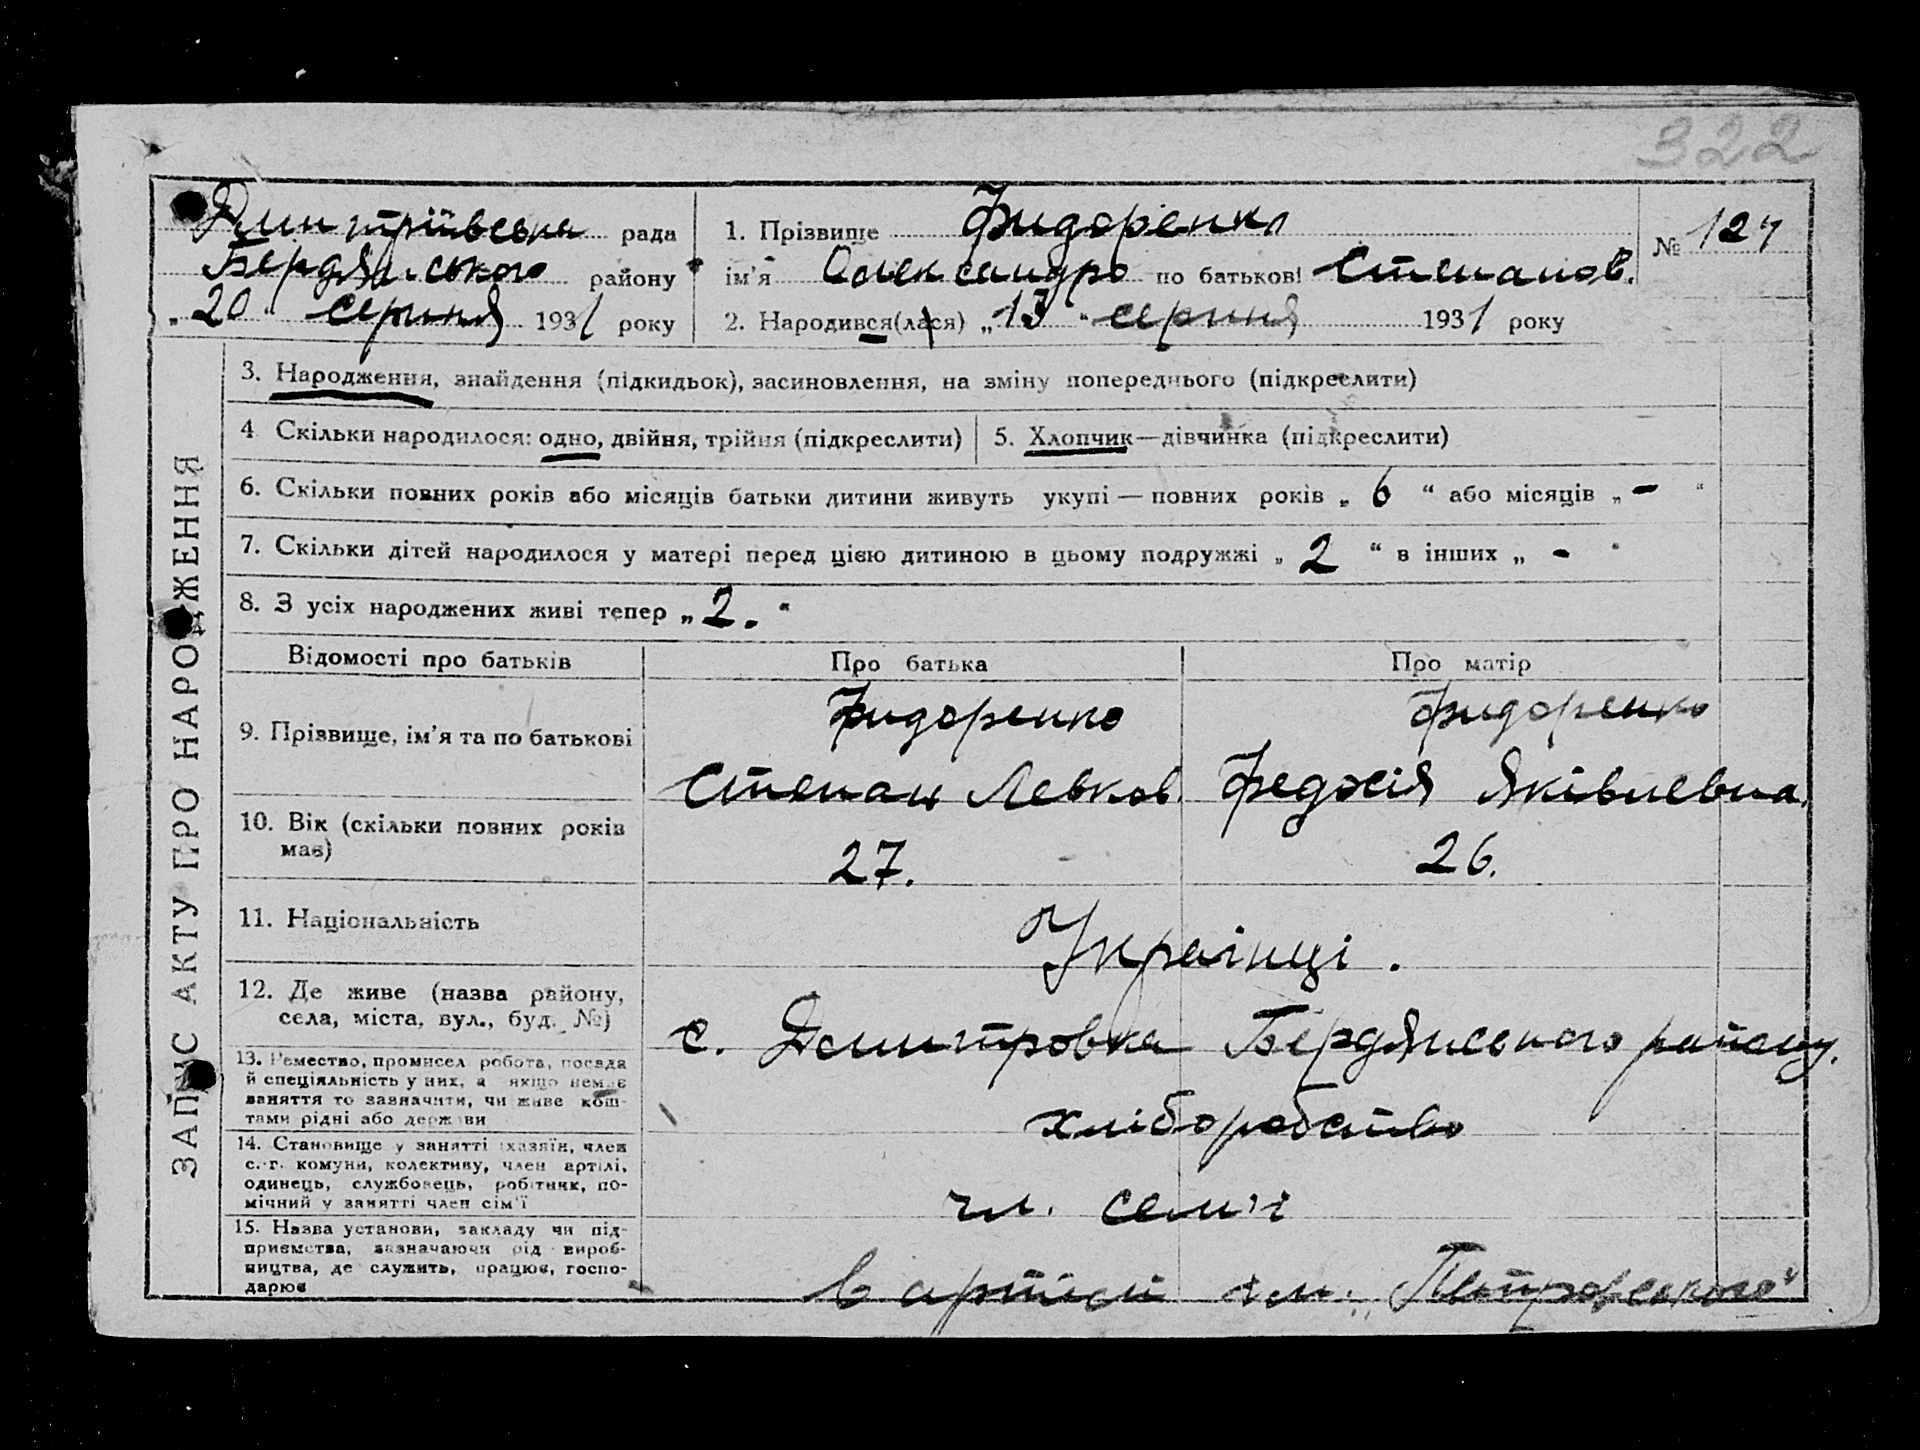 322
Дмитріївська рада
Бердянського району
„20“ серпня 1931 року
1. Прізвище Фидоренко
ім’я Олександро по батькові Степанов.
2. Народився(лася) „13“ серпня 1931 року
№ 127
ЗАПИС АКТУ ПРО НАРОДЖЕННЯ
3. Народження, знайдення (підкидьок), засиновлення, на зміну попереднього (підкреслити)
4 Скільки народилося: одно, двійня, трійня (підкреслити)
5. Хлопчик—дівчинка (підкреслити)
6. Скільки повних років або місяців батьки дитини живуть укупі — повних років „ 6 “ або місяців „ - “
7. Скільки дітей народилося у матері перед цією дитиною в цьому подружжі „ 2 “ в інших „ - “
8. З усіх народжених живі тепер „ 2. “
Відомості про батьків Про батька Про матір
9. Прізвище, ім’я та по батькові
Фидоренко
Степан Левков.
Фидоренко
Федосія Яківлевна.
10. Вік (скільки повних років
має)
27.
26.
11. Національність
Українці.
12. Де живе (назва району,
села, міста, вул., буд. №)
с. Дмитровка Бердянського району.
13. Ремество, промисел робота, посада
й спеціяльність у них, а якщо немає
заняття то зазначити, чи живе кош-
тами рідні або держави
хліборобство
14. Становище у занятті (хазяїн, член
с.-г. комуни, колективу, член артілі,
одинець, службовець, робітник, по-
мічний у занятті член сім’ї
чл. сем'ї
15. Назва установи, закладу чи під-
приємства, зазначаючи рід вироб-
ництва, де служить, працює, госпо-
дарює
в артілі ім. „Петровського“